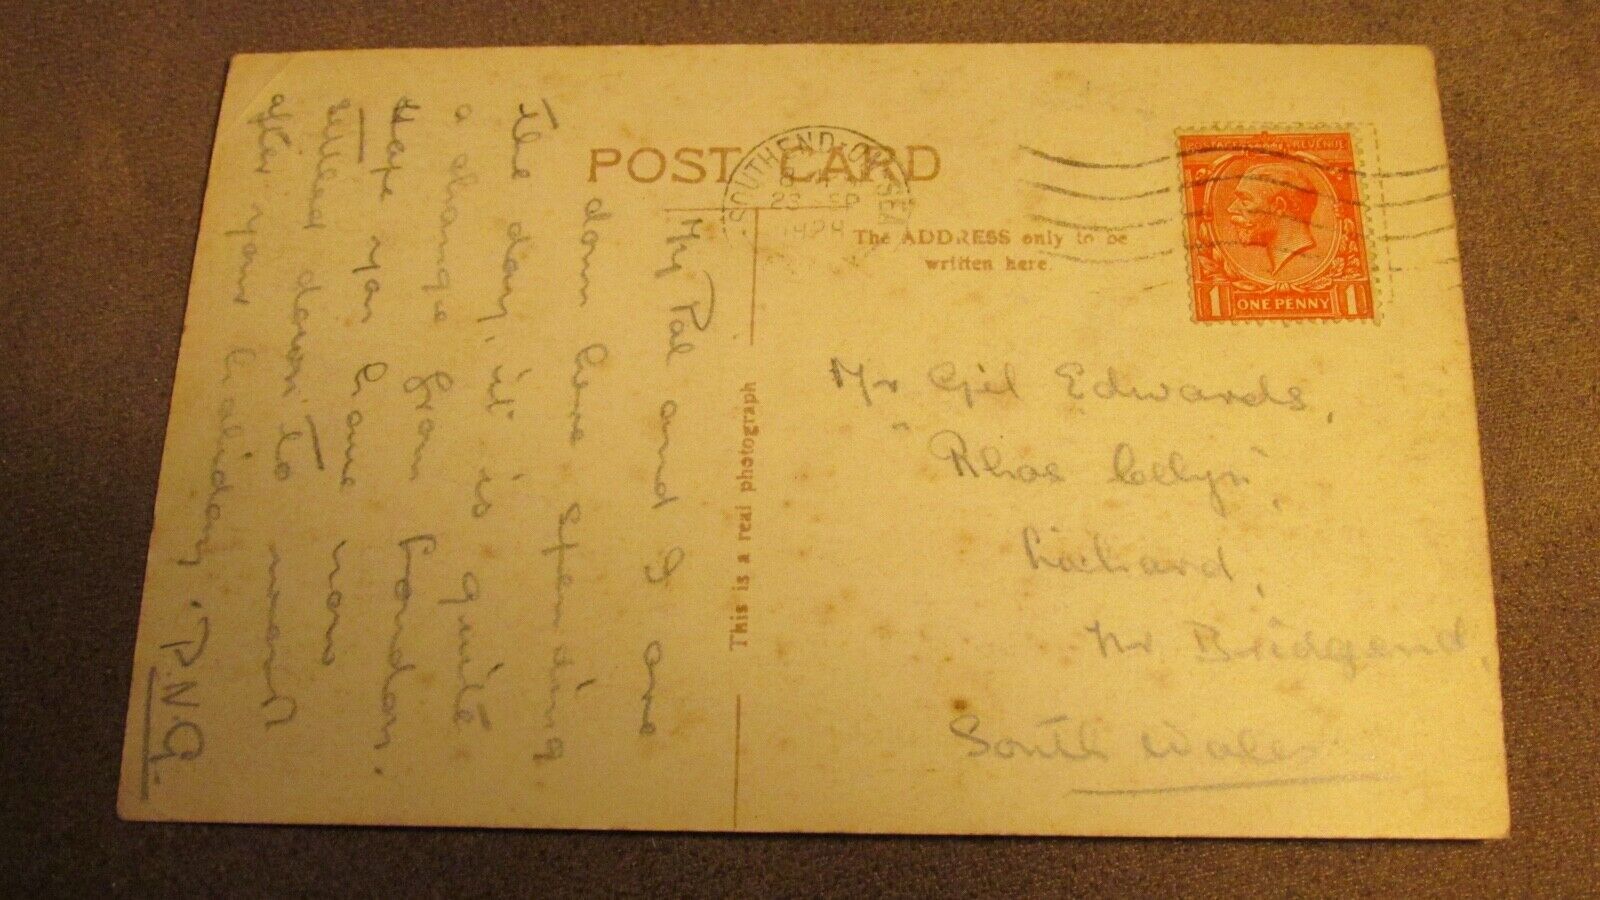 POST CARD
SOUTHEND-ON-SEA
23 SP
1924
POSTAGE REVENUE
1 ONE PENNY 1
The ADDRESS only to be
written here.
This is a real photograph
My Pal and I are
down here spending
the day, it is quite
a change from London.
Hope you have now
settled down to work
after your holiday. P.N.G.
Mr Gil Edwards,
"Rhos Celyn",
Litchard,
Nr Bridgend,
South Wales